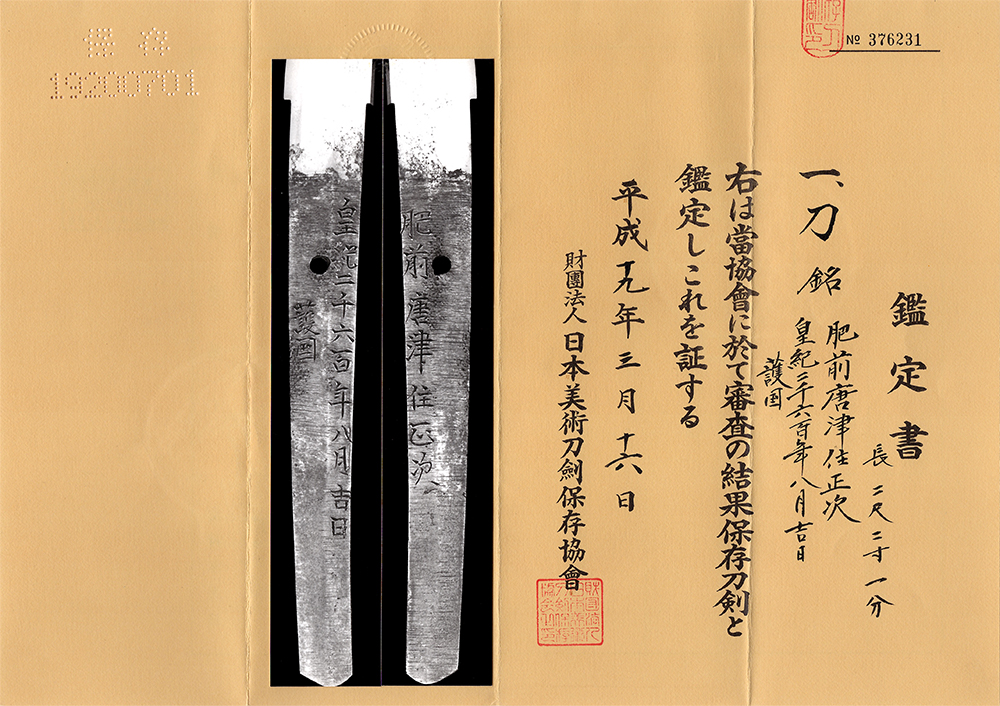 № 376231
鑑定書
一、刀 銘 肥前唐津住正次
長 二尺二寸一分
皇紀二千六百年八月吉日
護国
右は當協會に於て審査の結果保存刀剣と
鑑定しこれを証する
平成十九年三月十六日
財團法人 日本美術刀劍保存協會
肥前唐津住正次
皇紀二千六百年八月吉日
護国
保存
19200701